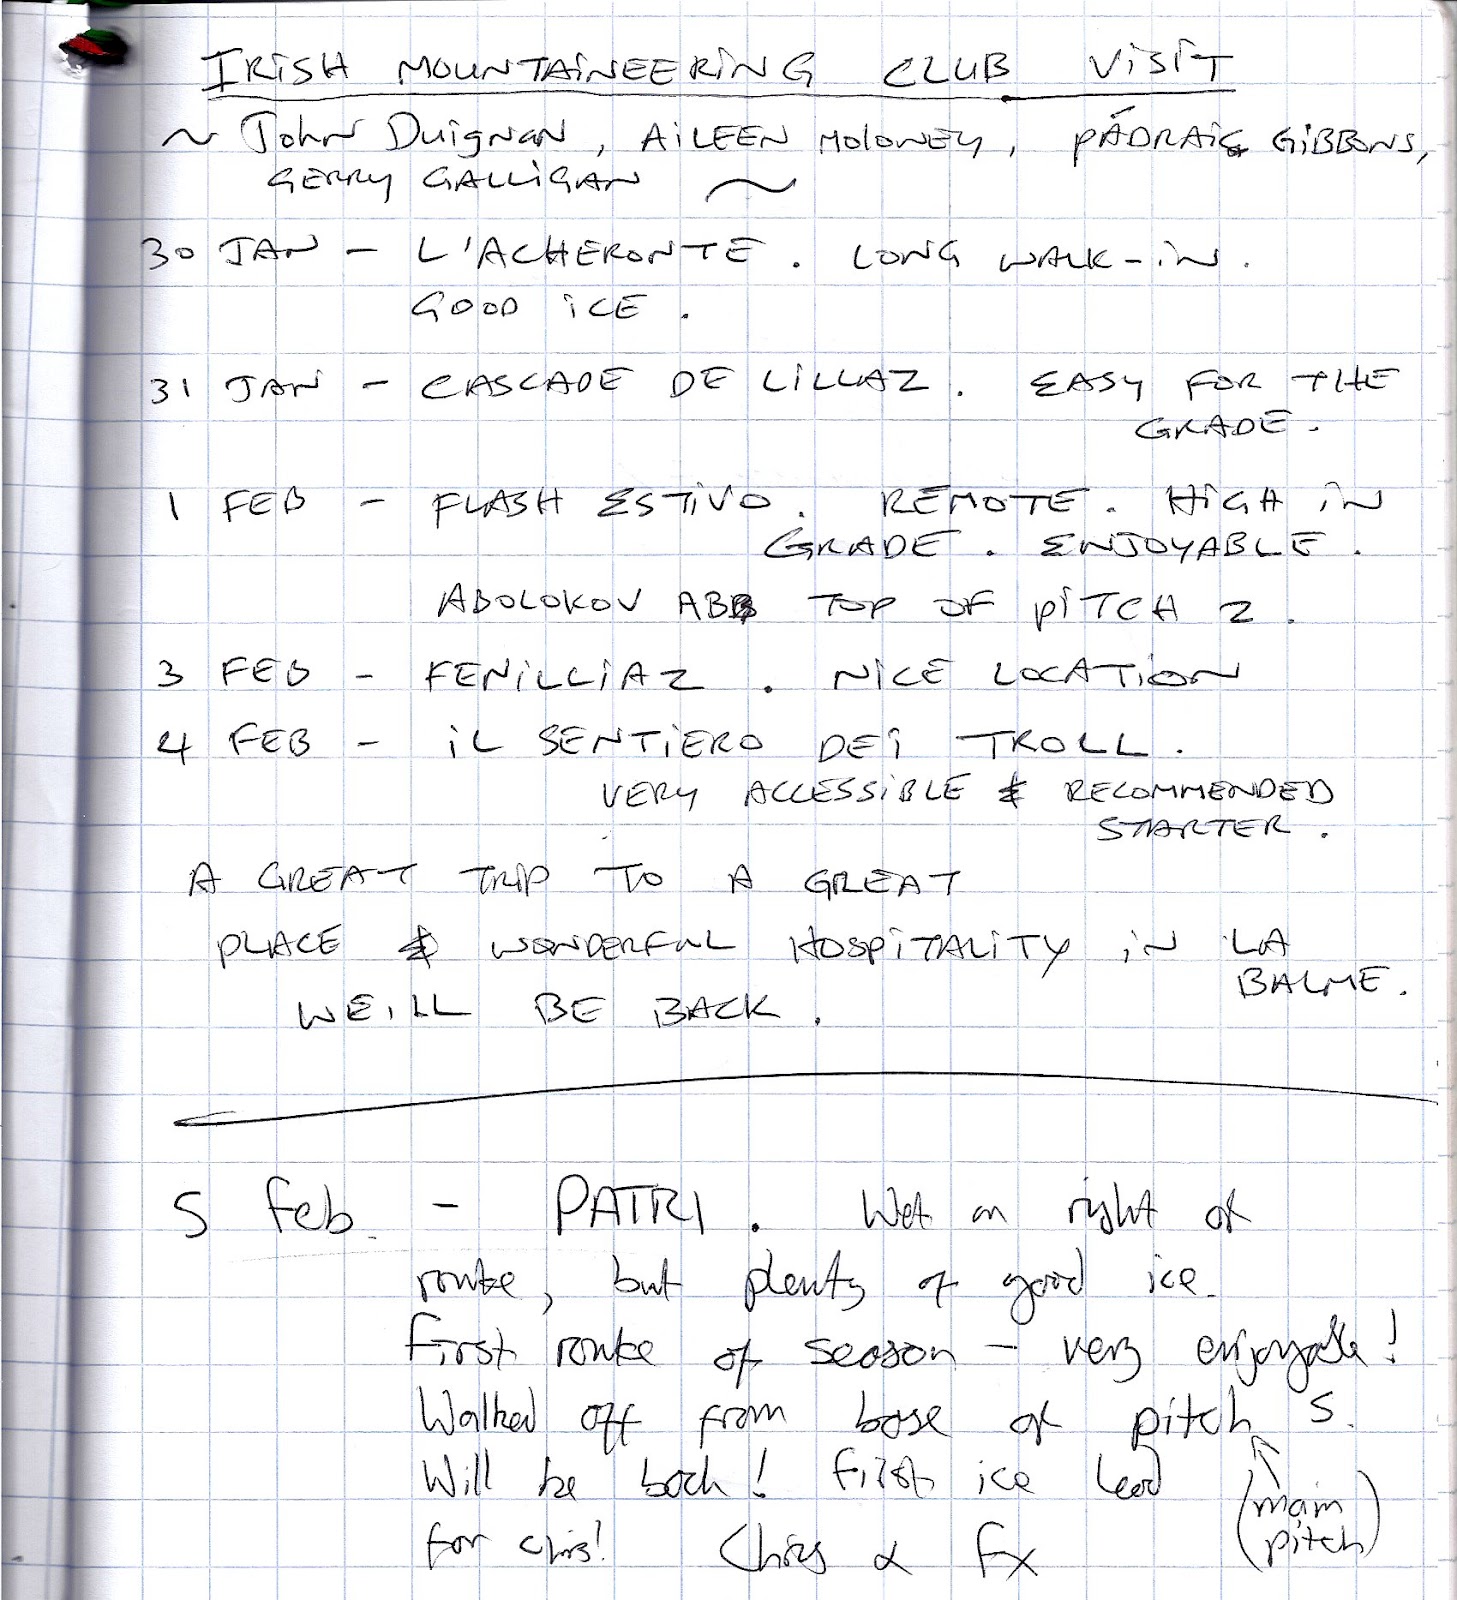 IRISH MOUNTAINEERING CLUB VISIT
~ John Duignan, AILEEN MOLONEY, PÁDRAIG GIBBONS,
GERRY GALLIGAN ~
30 JAN - L'ACHERONTE. LONG WALK-IN.
GOOD ICE.
31 JAN - CASCADE DE LILLAZ. EASY FOR THE
GRADE.
1 FEB - FLASH ESTIVO. REMOTE. HIGH IN
GRADE. ENJOYABLE.
ABOLOKOV ABB TOP OF PITCH 2.
3 FEB - FENILLIAZ. NICE LOCATION
4 FEB - IL SENTIERO DEI TROLL.
VERY ACCESSIBLE & RECOMMENDED
STARTER.
A GREAT TRIP TO A GREAT
PLACE & WONDERFUL HOSPITALITY IN LA
BALME.
WE'LL BE BACK.
5 Feb. - PATRI. Wet on right of
route, but plenty of good ice.
First route of season - very enjoyable!
Walked off from base of pitch 5.
Will be back! First ice lead
(main
pitch)
for Chris! Chris & Fx